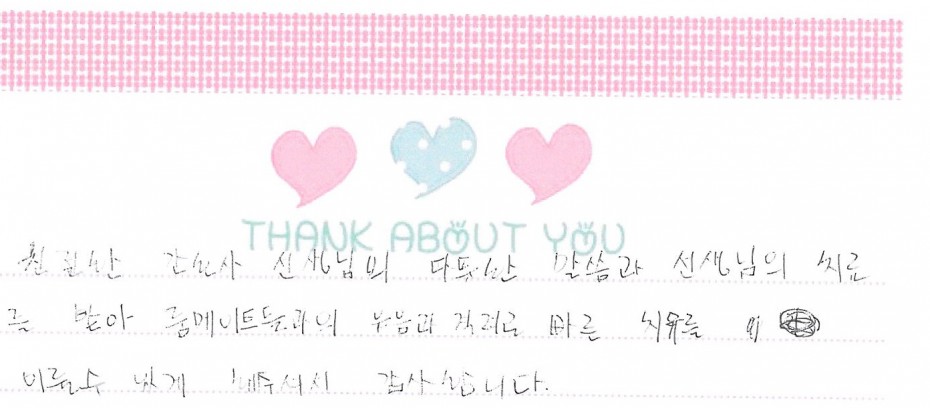 THANK ABOUT YOU
친절한 간호사 선생님의 따뜻한 말씀과 선생님의 치료
를 받아 룸메이트들과의 웃음과 격려로 빠른 치유를
이룰수 있게 해주셔서 감사합니다.